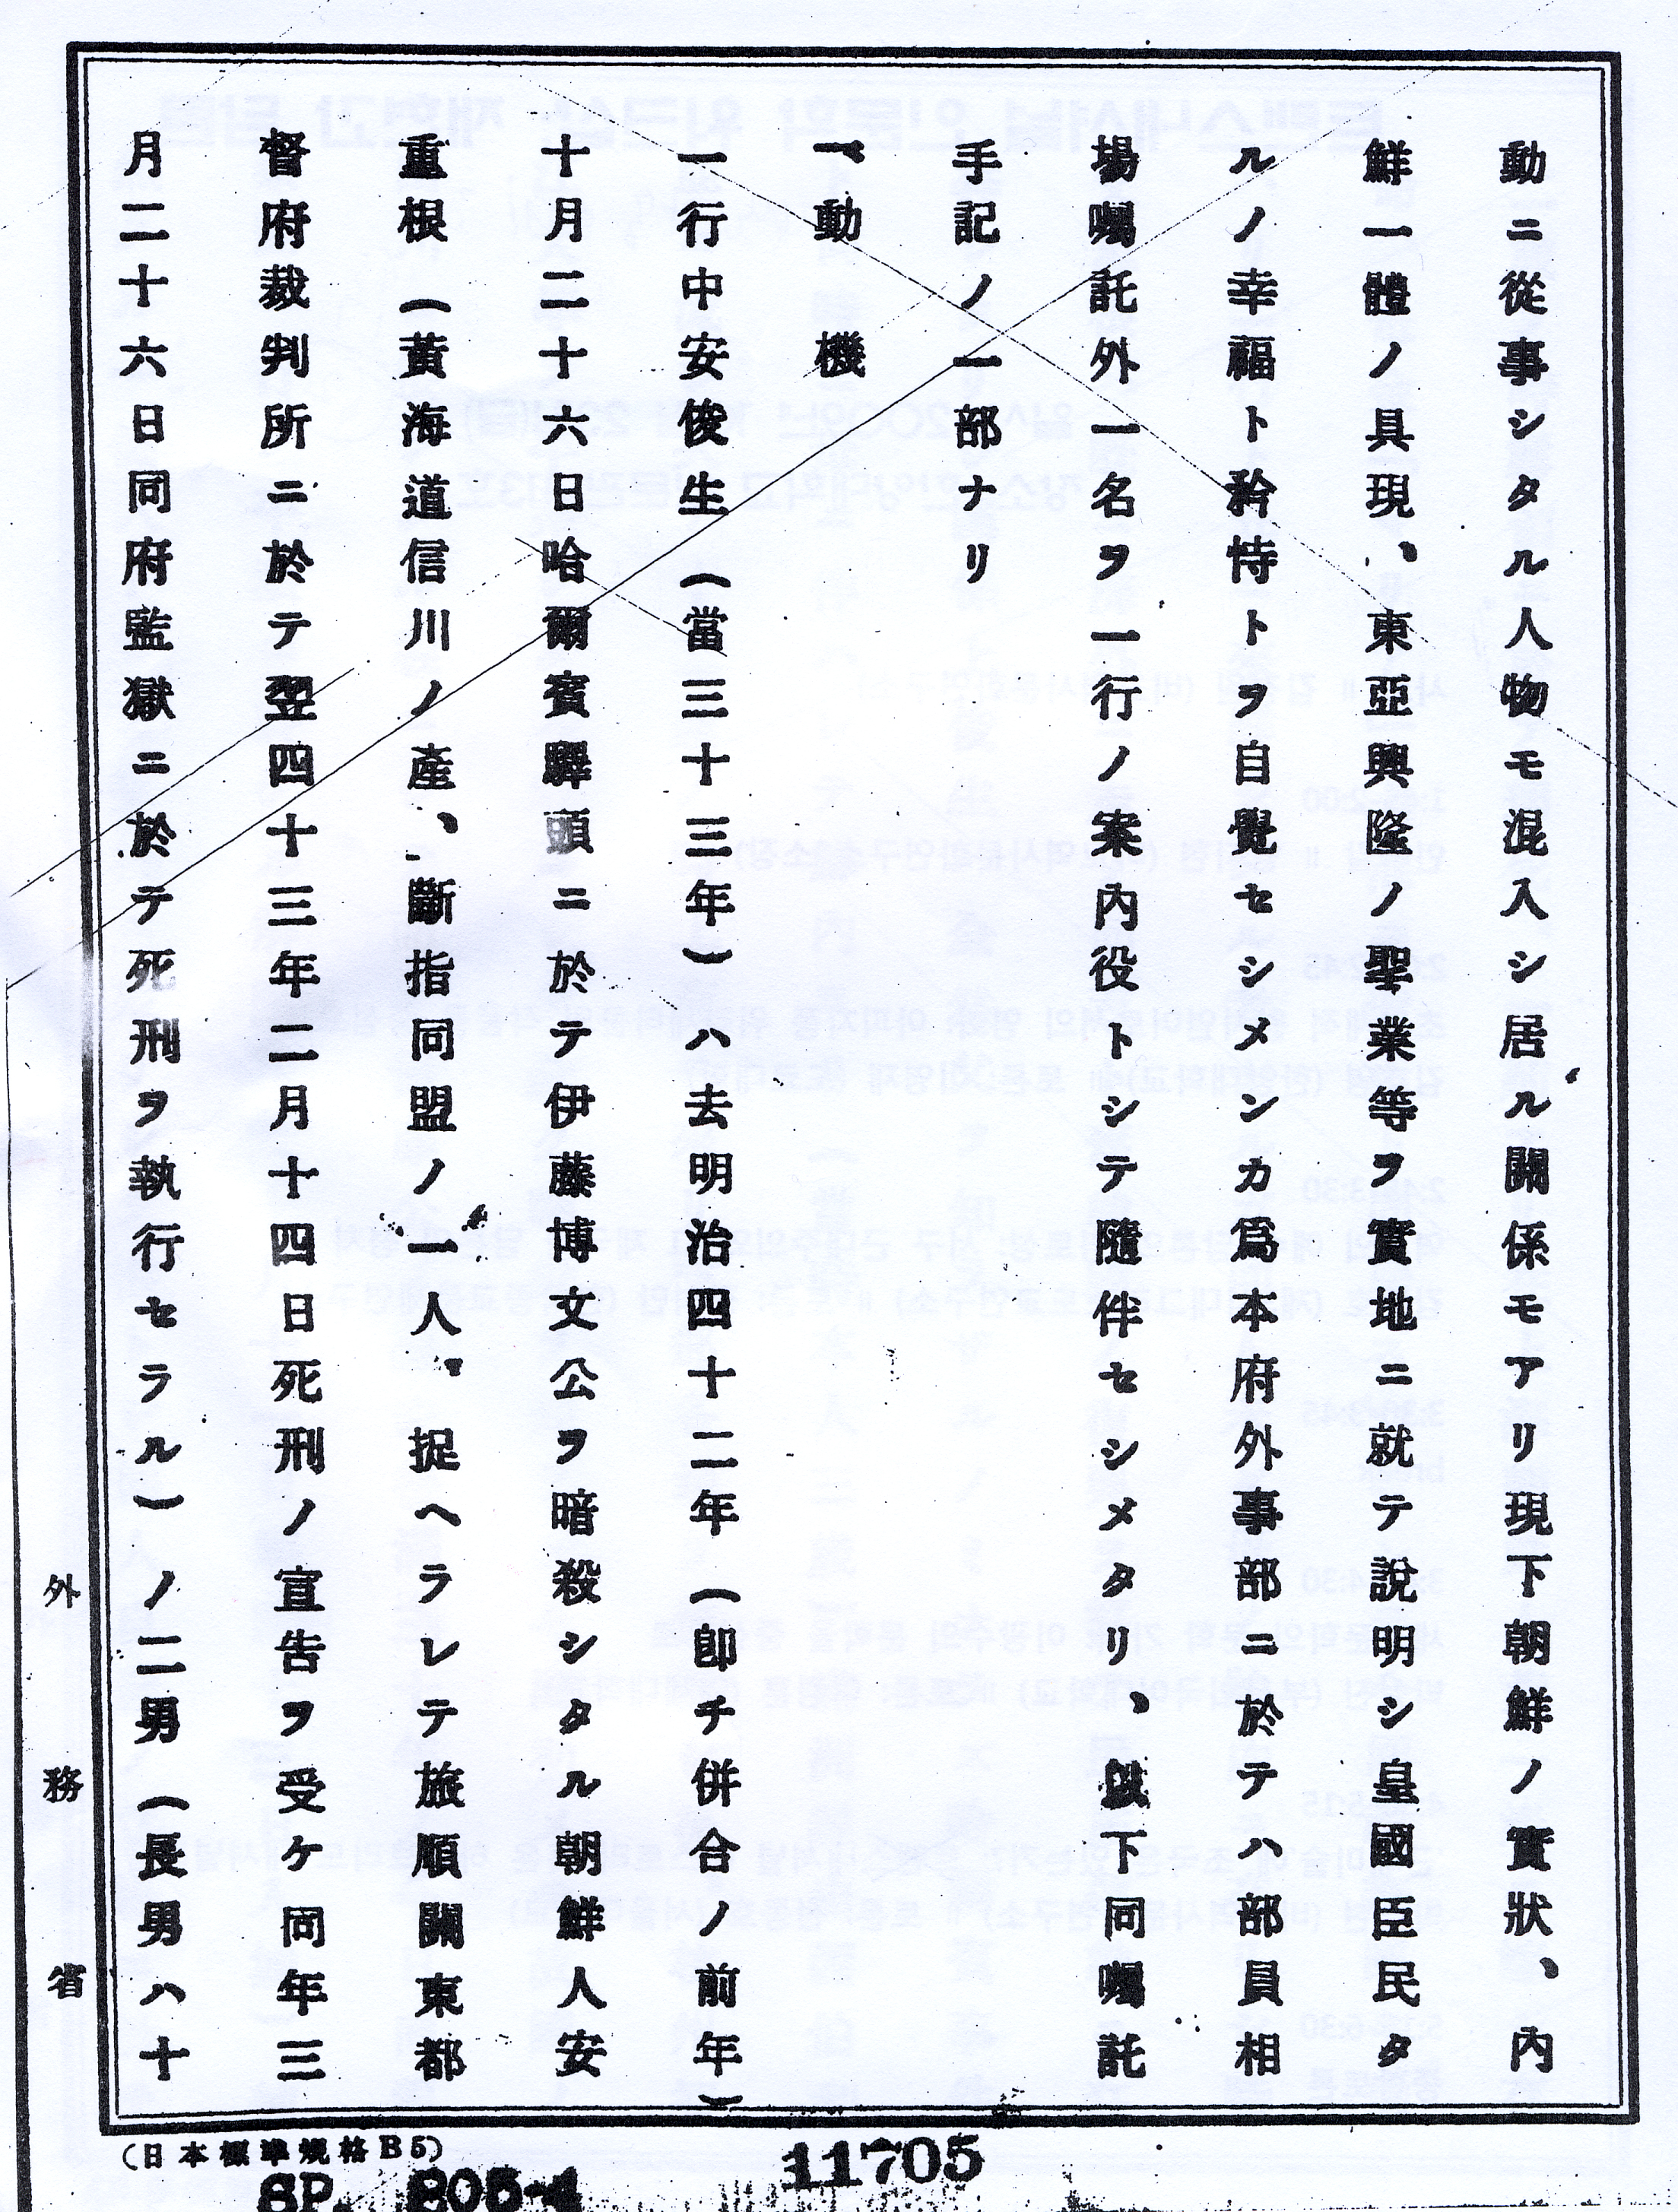 動ニ從事シタル人物モ混入シ居ル關係モアリ現下朝鮮ノ實狀、內
鮮一體ノ具現、東亞興隆ノ聖業等ヲ實地ニ就テ說明シ皇國臣民タ
ルノ幸福ト矜恃トヲ自覺セシメンカ爲本府外事部ニ於テハ部員相
場囑託外一名ヲ一行ノ案內役トシテ隨伴セシメタリ、下同囑託
手記ノ一部ナリ
一、動機
一行中安俊生(當三十三年)ハ去明治四十二年(卽チ併合ノ前年)
十月二十六日哈爾賓驛頭ニ於テ伊藤博文公ヲ暗殺シタル朝鮮人安
重根(黃海道信川ノ產、斷指同盟ノ一人。捉ヘラレテ旅順關東都
督府裁判所ニ於テ翌四十三年二月十四日死刑ノ宣告ヲ受ケ同年三
月二十六日同府監獄ニ於テ死刑ヲ執行セラル)ノ二男(長男ハ十
外務省
(日本標準規格B5)
SP. 205-4
11705